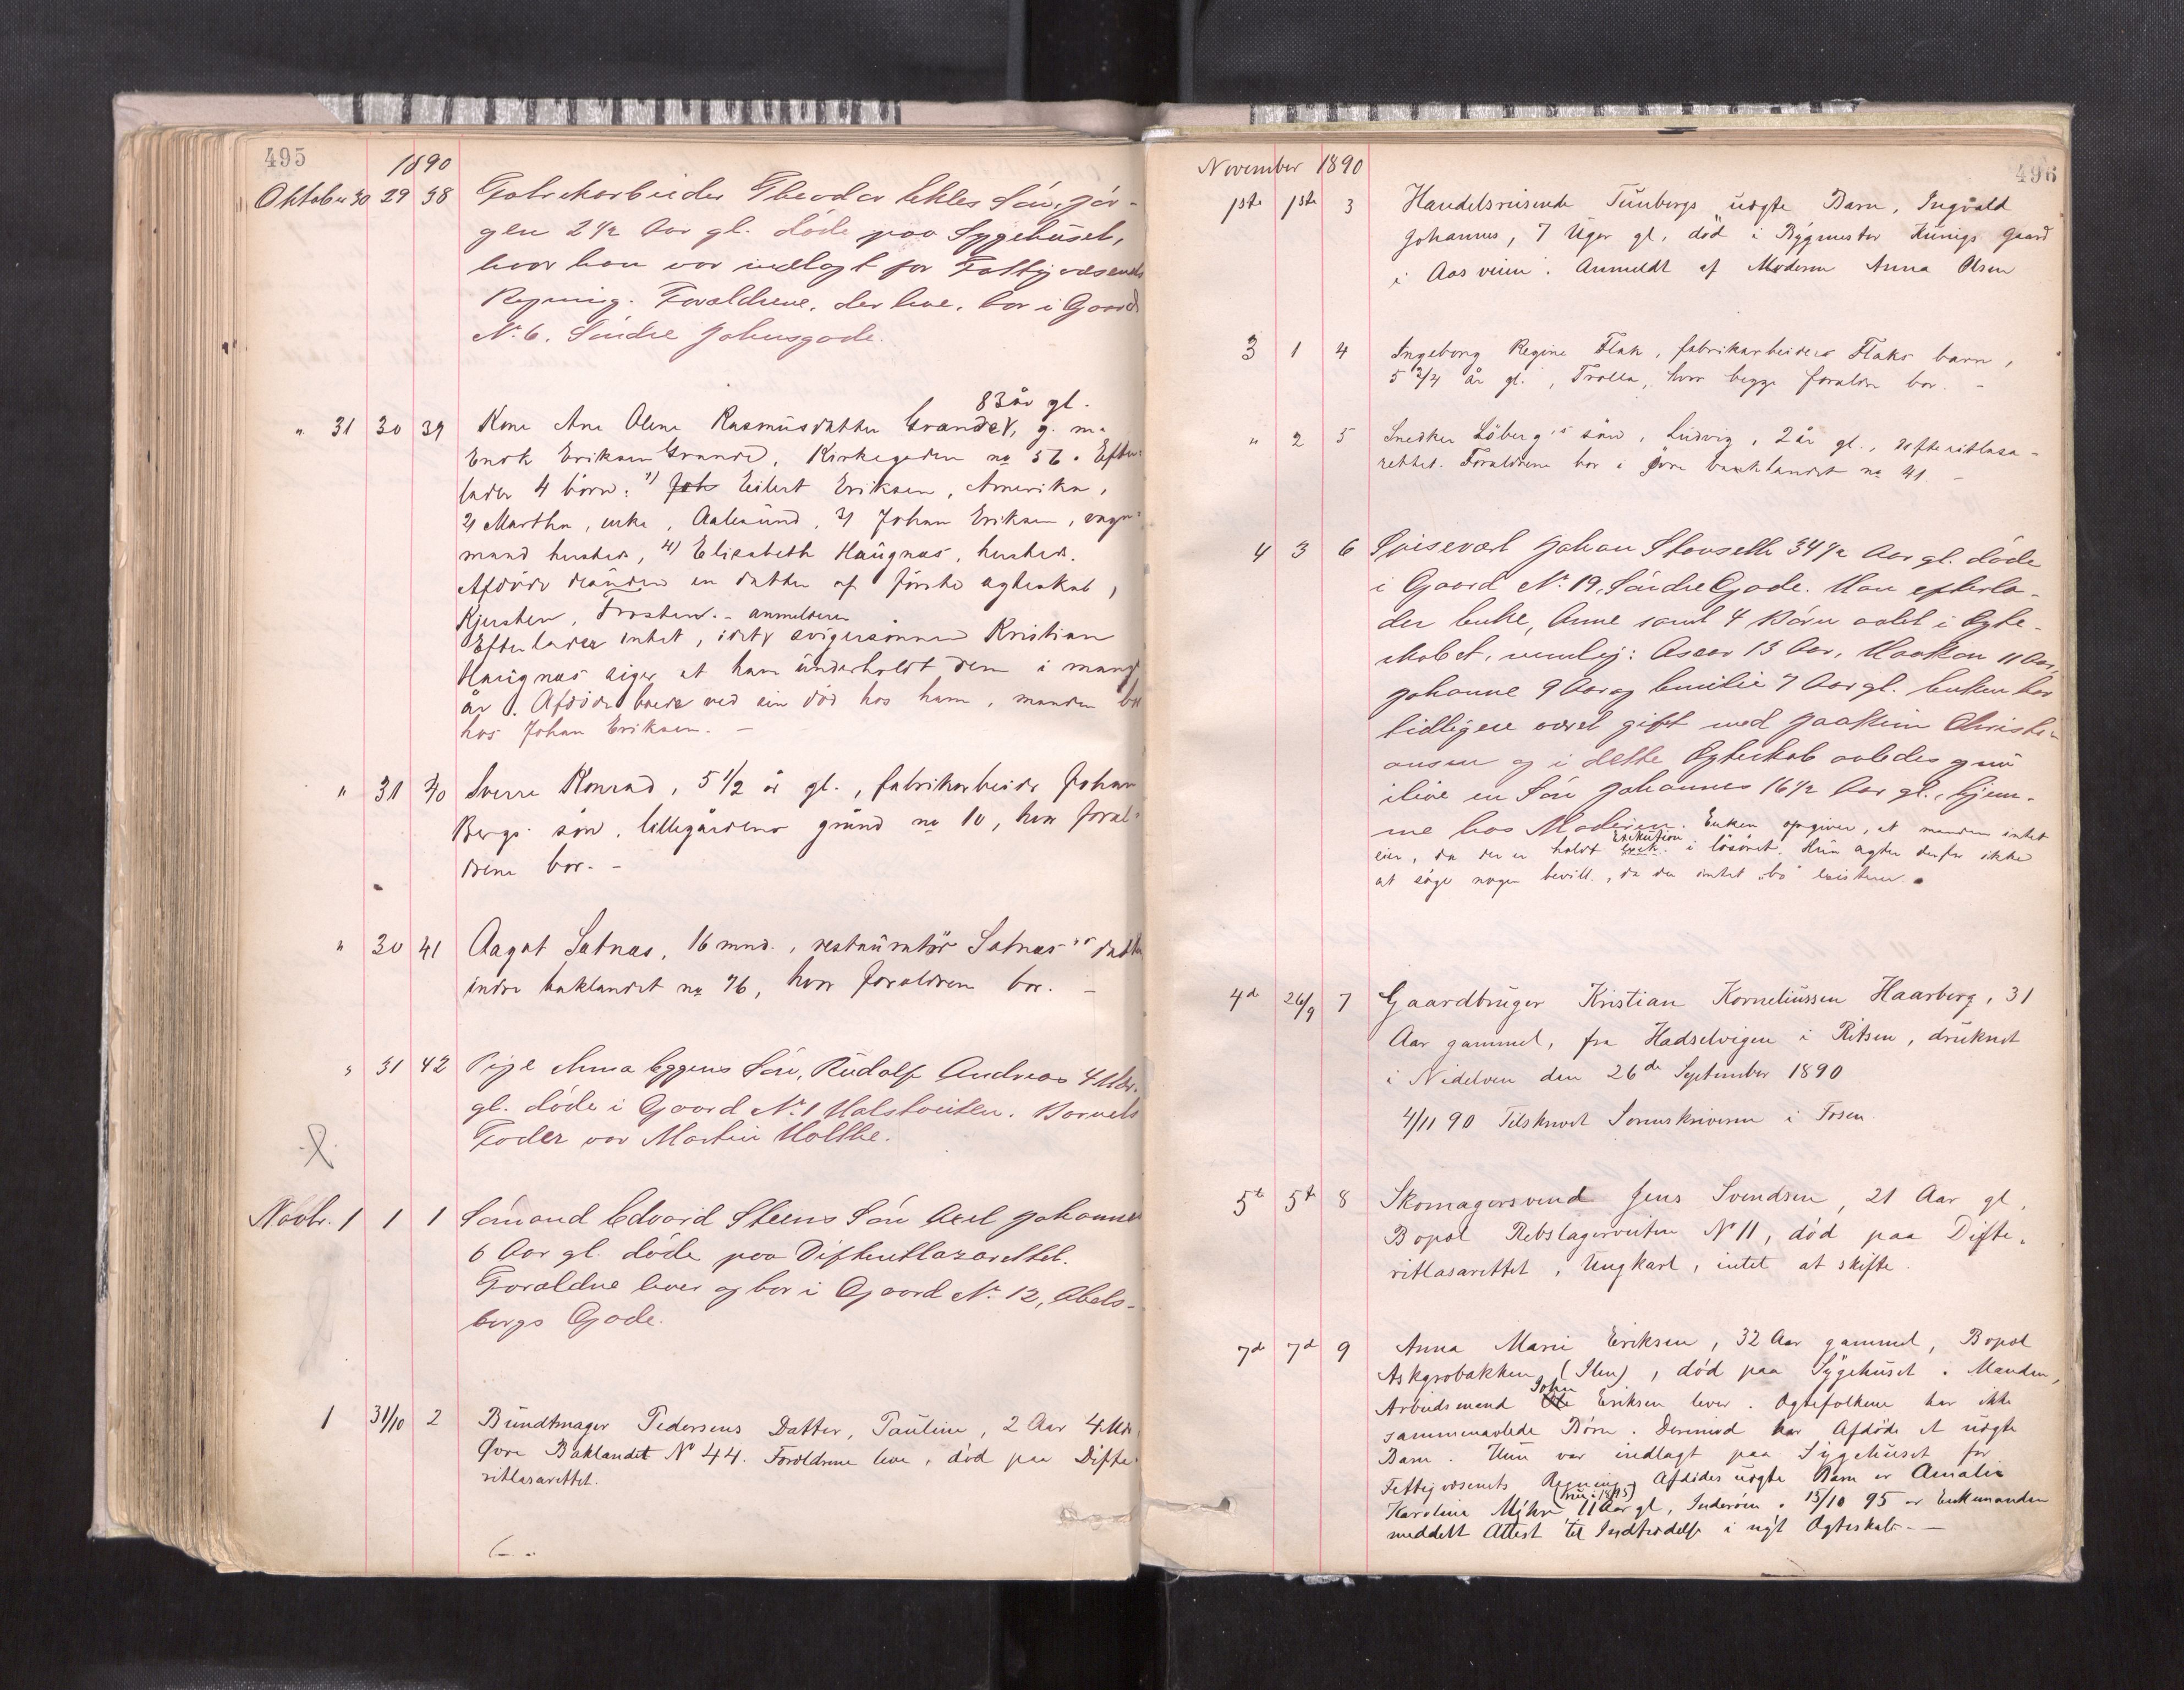 495
1890
Oktober 30 29 38 Fabrikarbeider Theodor Ekles Søn, Jør-
gen 2 1/2 Aar gl. døde paa Sygehuset,
hvor han var indlagt for Fattigvæsenets
Regning. Forældrene, der leve, bor i Gaard
No 6, Søndre Johnsgade.
83 år gl.
" 31 30 39 Kone Ane Olene Rasmusdatter Grande, g. m.
Enok Eriksen Grande, Kirkegaden no 56. Efter-
lader 4 børn: 1) Joh Eilert Eriksen, Amerika,
2) Martha, enke, Aalesund, 3) Johan Eriksen, vogn-
mand hersteds, 4) Elisabeth Haugnæs, hersteds.
Afdøde desuden en datter af første ægteskab,
Kjersten, Frosten. - anmelderen
Efterlader intet, idet svigersønnen Kristian
Haugnæs siger at ham underholdt dem i mange
år. Afdøde boede ved sin død hos ham, manden bor
hos Johan Eriksen. -
" 31 40 Sverre Konrad, 5 1/2 år gl., fabrikarbeider Johan
Bergs søn, lillegårdens grund no 10, hvor foræl-
drene bor. -
" 30 41 Aagot Sætnæs, 16 mnd., restauratør Sætnæs's datter
indre baklandet no 76, hvor forældrene bor. -
" 31 42 Pige Anna Eggens Søn, Rudolf Andreas 4 Mdr.
gl. døde i Gaard No 1 Halstveiten. Barnets
Fader var Martin Holthe.
Novbr. 1 1 1 Sømand Edvard Steens Søn Axel Johannes
6 Aar gl. døde paa Difteritlazarettet.
Forældre lever og bor i Gaard No 12, Abels-
borgs Gade.
1 31/10 2 Bundtmager Pedersens Datter, Pauline, 2 Aar 4 Mdr,
Øvre Baklandet No 44. Forældrene leve, død paa Difte-
ritlasarettet.
496
November 1890
1ste 1ste 3 Handelsreisende Tunbergs uægte Barn, Ingvald
Johannes, 7 Uger gl, død i Bygmester Kunigs Gaard
i Aasveien. Anmeldt af Moderen Anna Olsen
3 1 4 Ingeborg Regine Flak, fabrikarbeider Flaks barn,
5 3/4 år gl., Trolla, hvor begge forældre bor. -
" 2 5 Snedker Løberg's søn, Ludvig, 2 år gl., difteritlasa-
rettet. Forældrene bor i øvre baklandet no 41. -
4 3 6 Spisevært Johan Stavseth 34 1/2 Aar gl. døde
i Gaard No 19, Søndre Gade. Han efterla-
der Enke, Anne samt 4 Børn avlet i Ægte-
skabet, nemlig: Oscar 13 Aar, Haakon 11 Aar,
Johanne 9 Aar og Emilie 7 Aar gl. Enken har
tidligere været gift med Joakim Christi-
ansen og i dette Ægteskab avledes og nu
ilive en Søn Johannes 16 1/2 Aar gl., hjem-
me hos Moderen. Enken opgiver, at manden intet
eier, da der er holdt exek. Exekution i løsøret. Hun agter derfor ikke
at søge nogen bevill., da der intet "bo" existerer.
4de 26/9 7 Gaardbruger Kristian Korneliussen Haarberg, 31
Aar gammel, fra Hadselvigen i Ritsen, druknet
i Nidelven den 26de September 1890
4/11 90 Tilskrevet Sorenskriveren i Fosen
5te 5te 8 Skomagersvend Jens Svendsen, 21 Aar gl,
Bopæl Rebslagerveiten No 11, død paa Difte-
ritlasarettet, Ungkarl, intet at skifte.
7de 7de 9 Anna Marie Eriksen, 32 Aar gammel, Bopæl
Askgrobakken (Ilen), død paa Sygehuset. Manden,
Arbeidsmand Ole John Eriksen lever. Ægtefolkene har ikke
sammenavlede Børn. Derimod har Afdøde et uægte
Barn. Hun var indlagt paa Sygehuset for
Fattigvæsenets Regning. Afdødes uægte Barn er Amalie
Karoline Myhre (nu i 1895) 11 Aar gl, Inderøen. 15/10 95 er Enkemanden
meddelt Attest til Indtrædelse i nyt Ægteskab. -